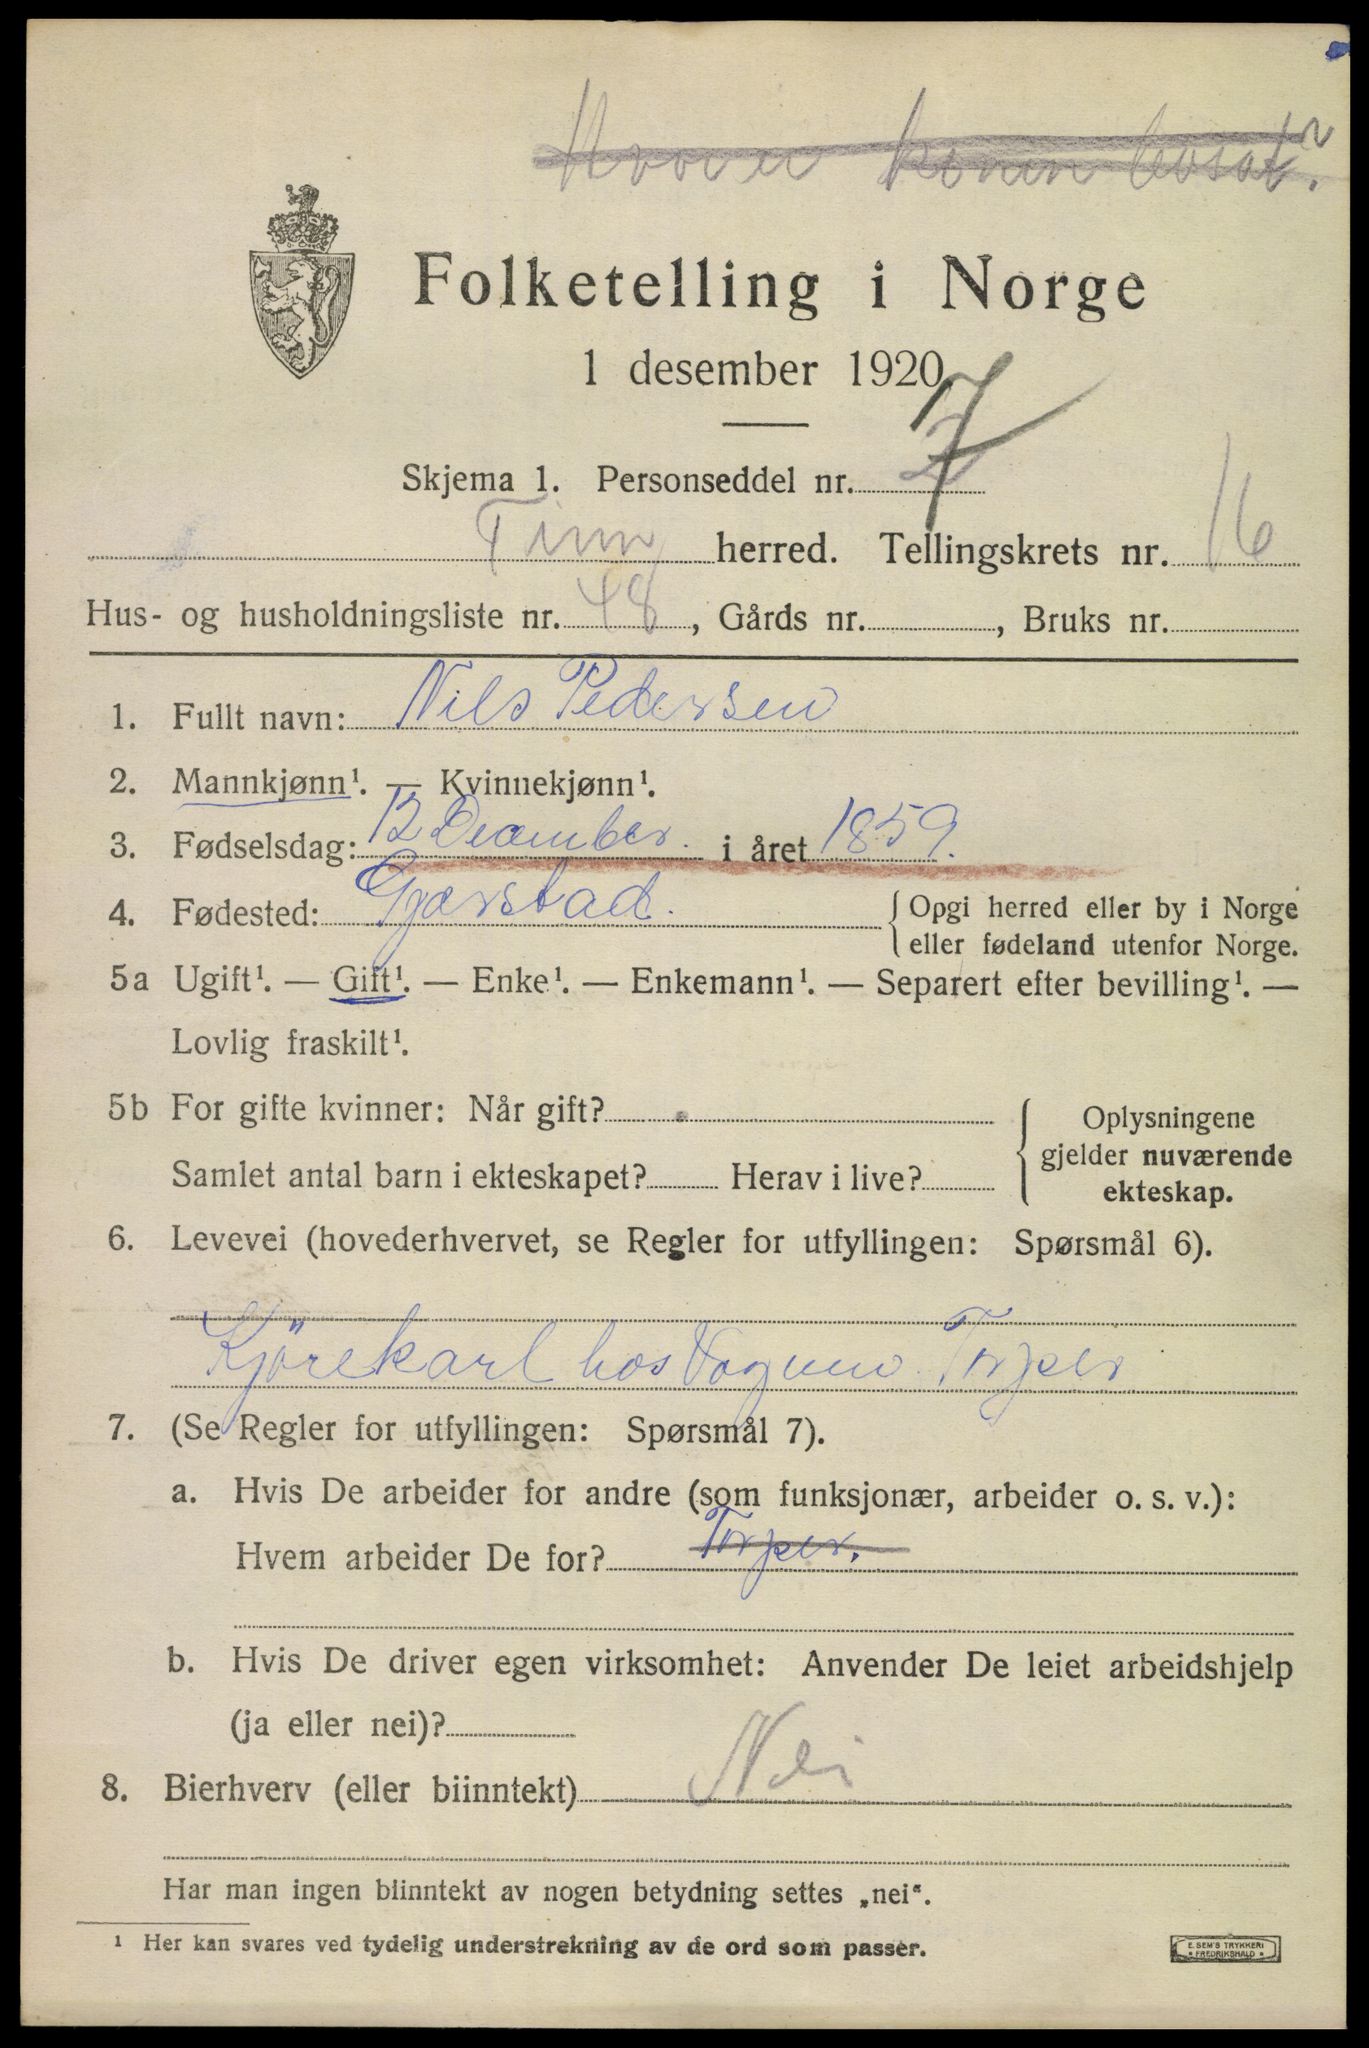 Folketelling i Norge
1 desember 1920
Skjema 1. Personseddel nr. 7
Tinn herred. Tellingskrets nr. 16
Hus- og husholdningsliste nr. 48, Gårds nr. , Bruks nr.
1. Fullt navn: Nils Pedersen
2. Mannkjønn¹. — Kvinnekjønn¹.
3. Fødselsdag: 12 December. i året 1859.
4. Fødested: Gjerstad. { Opgi herred eller by i Norge
eller fødeland utenfor Norge.
5a Ugift¹. — Gift¹. — Enke¹. — Enkemann¹. — Separert efter bevilling¹. —
Lovlig fraskilt¹.
5b For gifte kvinner: Når gift? { Oplysningene
gjelder nuværende
Samlet antal barn i ekteskapet? Herav i live?
ekteskap.
6. Levevei (hovederhvervet, se Regler for utfyllingen: Spørsmål 6).
Kjörekarl hos Torjer
7. (Se Regler for utfyllingen: Spørsmål 7).
a. Hvis De arbeider for andre (som funksjonær, arbeider o. s. v.):
Hvem arbeider De for? Torjer.
b. Hvis De driver egen virksomhet: Anvender De leiet arbeidshjelp
(ja eller nei)?
8. Bierhverv (eller biinntekt) Nei
Har man ingen biinntekt av nogen betydning settes „nei“.
¹ Her kan svares ved tydelig understrekning av de ord som passer.
E. SEM'S TRYKKERI
* FREDRIKSHALD *